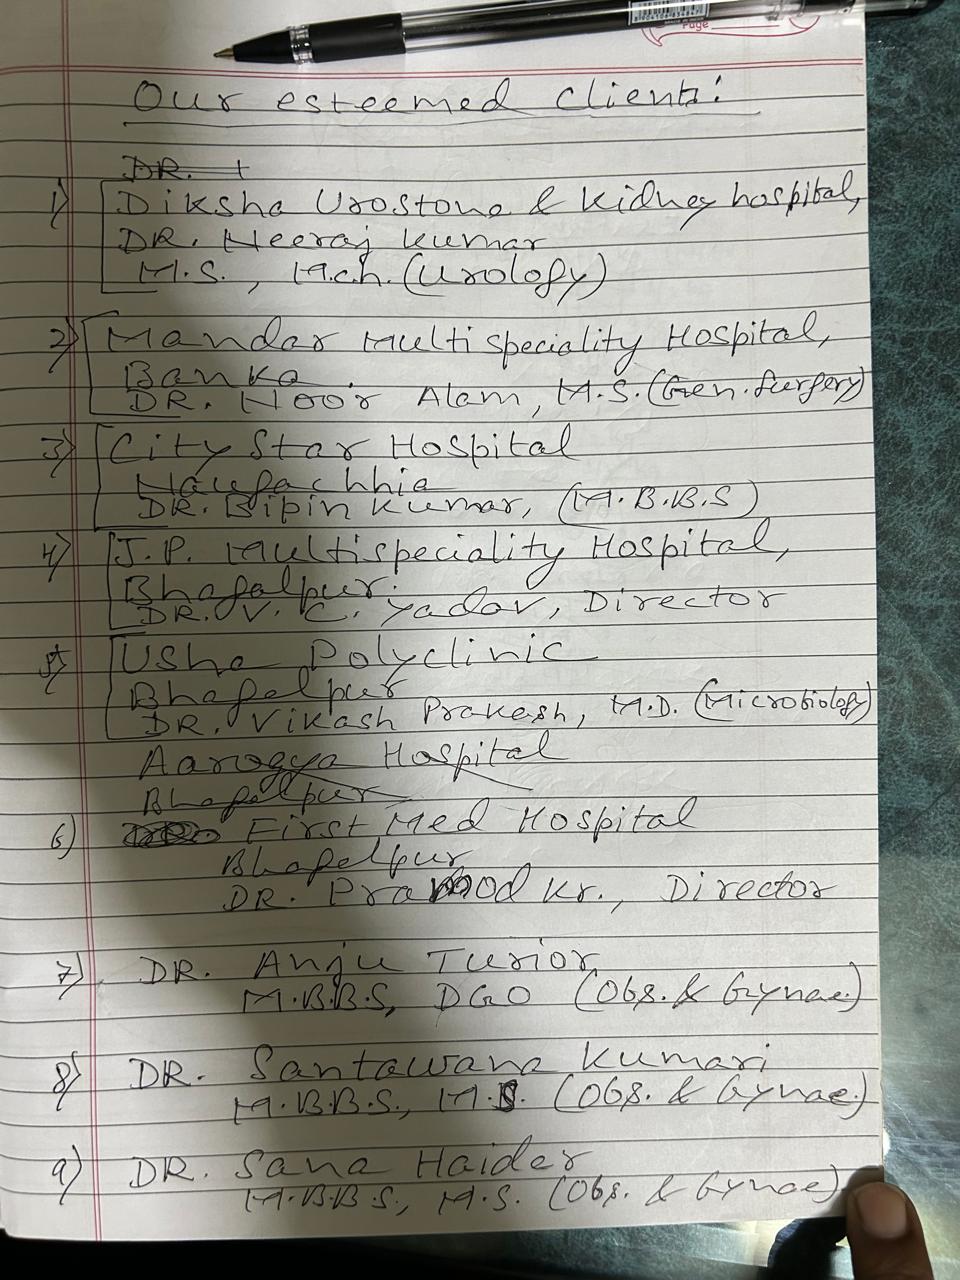 Page
Our esteemed clients:
DR.
1) Diksha Urostone & Kidney hospital,
DR. Neeraj Kumar
M.S., M.ch. (Urology)
2) Mandar Multispeciality Hospital,
Banka.
DR. Noor Alam, M.S. (Gen. Surgery)
3) City Star Hospital
Naugachhia
DR. Bipin Kumar, (M.B.B.S)
4) J.P. Multispeciality Hospital,
Bhagalpur.
DR. V. C. Yadav, Director
5) Usha Polyclinic
Bhagalpur
DR. Vikash Prakash, M.D. (Microbiology)
Aarogya Hospital
Bhagalpur
6) First Med Hospital
Bhagalpur
DR. Pramod Kr., Director
7) DR. Anju Turior
M.B.B.S, DGO (Obs. & Gynae.)
8) DR. Santawana Kumari
M.B.B.S., M.S. (Obs. & Gynae.)
9) DR. Sana Haider
M.B.B.S., M.S. (Obs. & Gynae)